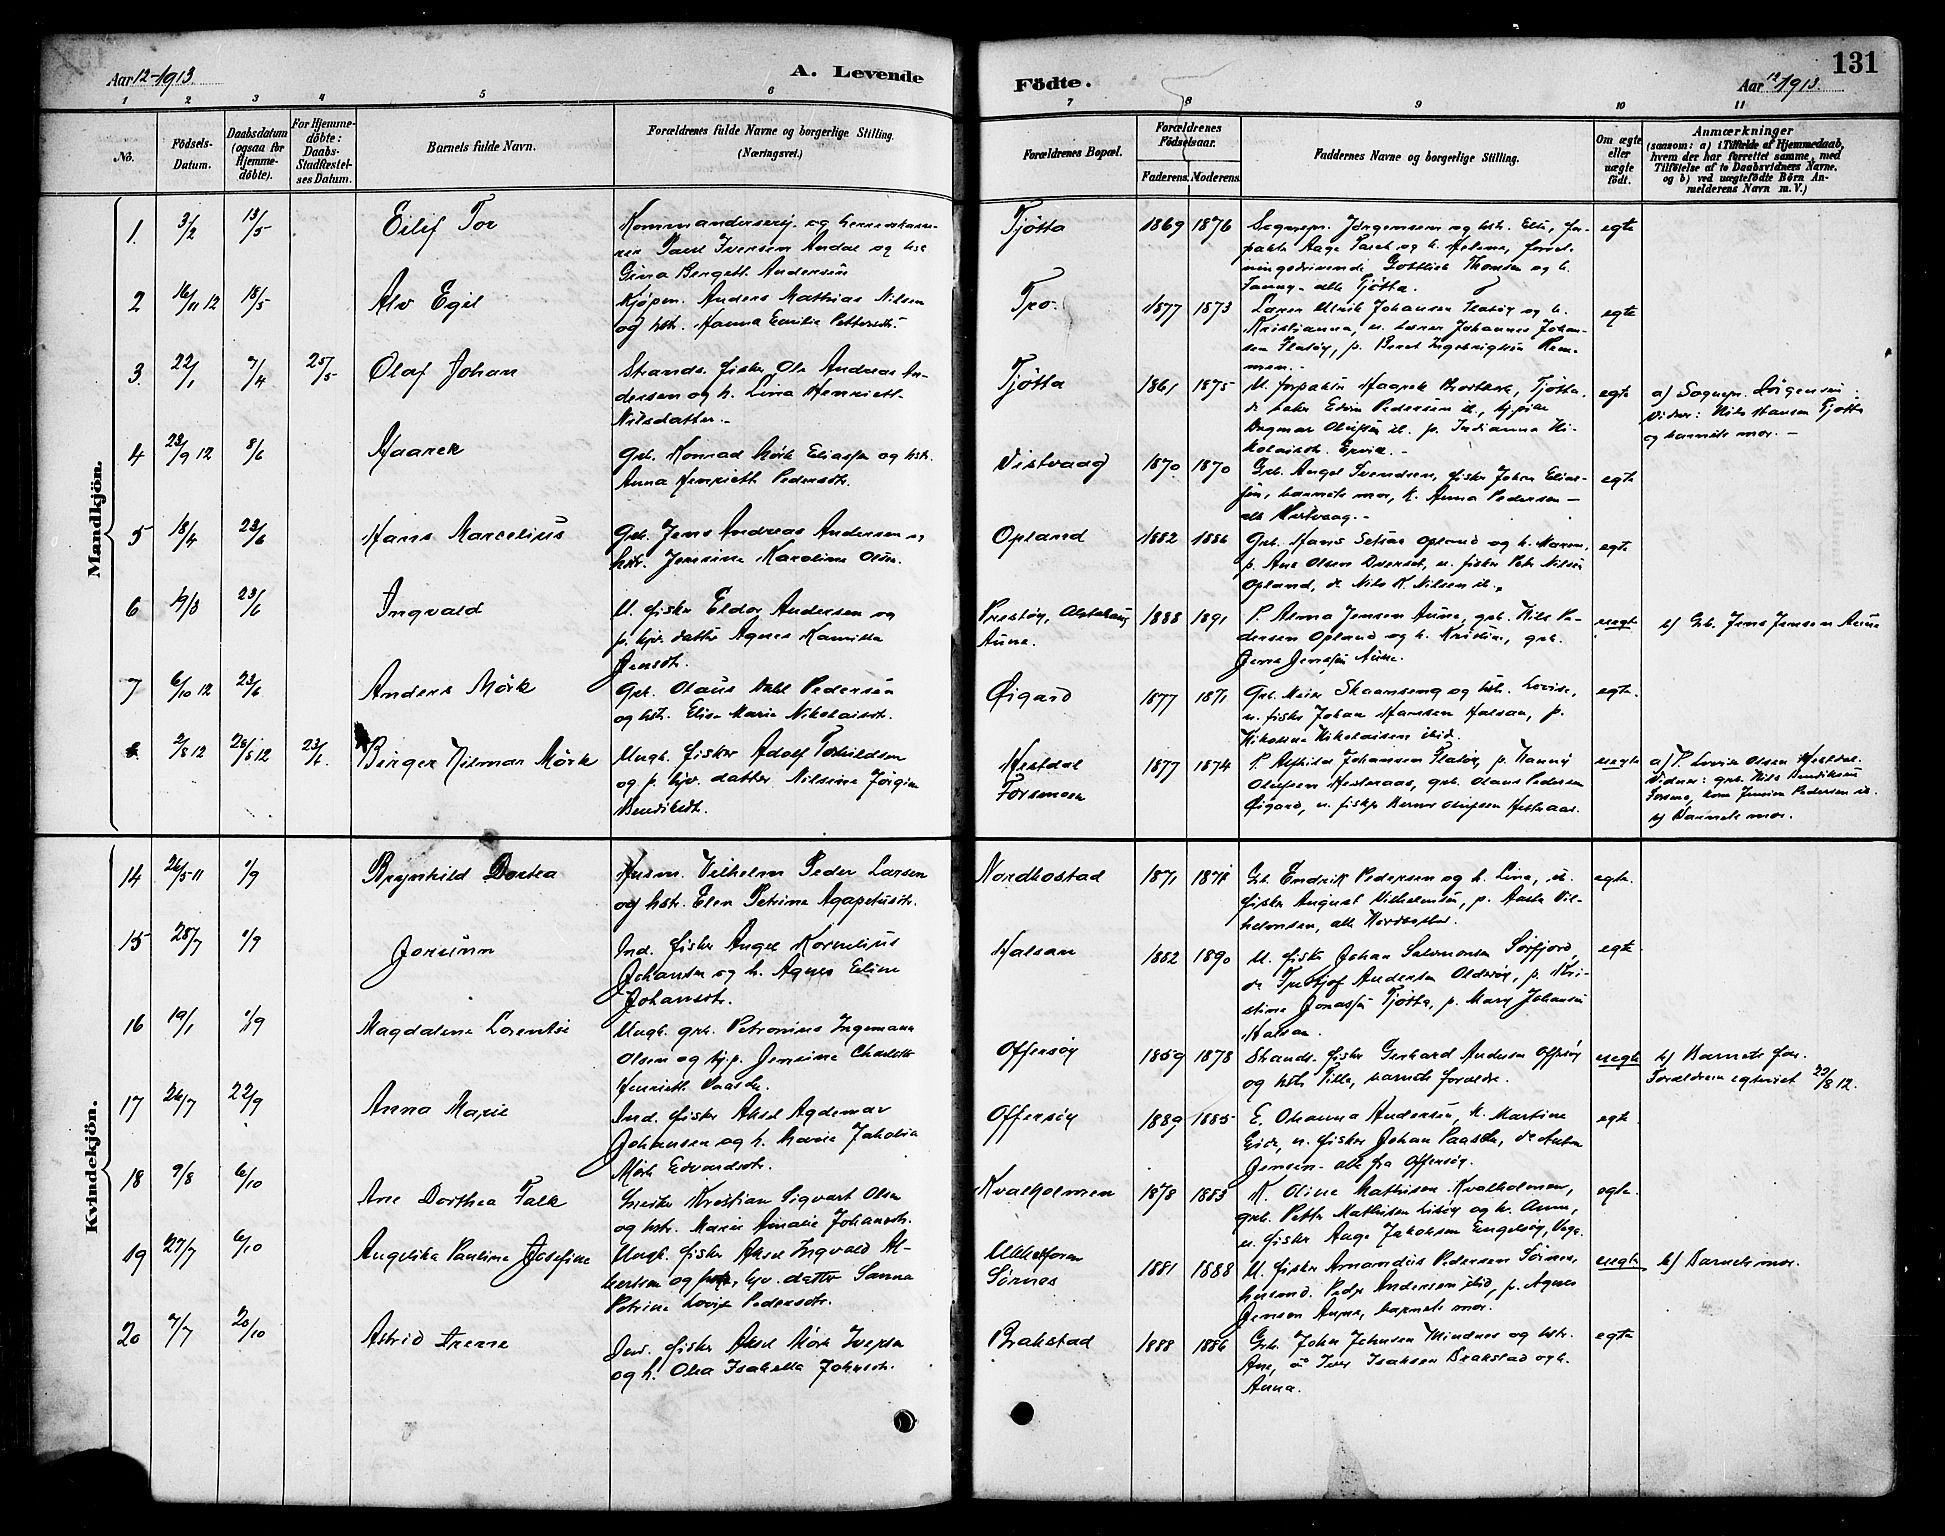 Aar 12-1913.
A. Levende
Födte.
Aar 12/1913.
131
1 2 3 4 5 6 7 8 9 10 11
No.
Födsels-
Datum.
Daabsdatum
(ogsaa for
Hjemme-
döbte).
For Hjemme-
döbte:
Daabs-
Stadfæstel-
ses Datum.
Barnets fulde Navn.
Forældrenes fulde Navne og borgerlige Stilling.
(Næringsvei.)
Forældrenes Bopæl.
Forældrenes
Födselsaar.
Faderens. Moderens.
Faddernes Navne og borgerlige Stilling.
Om ægte
eller
uægte
födt.
Anmærkninger
(saasom: a) i Tilfælde af Hjemmedaab,
hvem der har forrettet samme, med
Tilföielse af to Daabsvidners Navne,
og b) ved uægtefödte Börn An-
melderens Navn m. V.)
Mandkjön.
1. 3/2 13/5 Eilif Tor
og
Paul Iversen Andal og hst.
Gina Bergett. Andersen
Tjøtta 1869 1876
Sognepr. Jörgensen og hst. Elis, for-
pakter Aage og h. Helene,
Gottlieb Thomsen og h.
Fanny - alle Tjøtta.
egte
2 16/11 12 18/5 Alv Egil
Kjøpm. Anders Mathias Nilsen
og hst. Hanna Emilie Pettersdt.
Tro. 1877 1873
Lærer Ulrik Johansen Flatøy og h.
Kristianna, u. lærer Johannes Johan-
sen Flatøy, p. Beret Ingebrigtsen Rem-
men.-
egte
3. 22/1 7/4 25/5 Olaf Johan
Strands. fisker Ole Andreas An-
dersen og h. Lina Henriett-
Nilsdatter.-
Tjøtta 1861 1875
U. forpakter Haarek Brodtkorb, Tjøtta,
Edvin Pedersen ib.,
Dagmar Olufsen ib. p. Indianna Ni-
kolaisdt. Ervik.-
egte
a) Sognepr. Jörgensen.
Vidner: Nils Hansen Tjøtta
og barnets mor.-
4 23/9 12 8/6 Haarek
Grb. Konrad Mörk Eliassen og hst.
Anna Henriette Pedersdt.
Vistvaag 1870 1870
Grb. Angel Svendsen, fisker Johan Elias-
sen, barnets mor, k. Anna Pedersen -
alle Vistvaag.-
egte
5 18/4 23/6 Hans Marcelius
Grb. Jens Andreas Andersen og
hst. Jensine Karoline Olsen.
Opland 1882 1886
Grb. Hans Opland og h. Maren,
p. Ane Olsen u. fisker Petr Nilsen
Opland, do Nils K. Nilsen ib.
egte
6 4/3 23/6 Ingvald
U. fisker Eldor Andersen og
p. hjv. datter Agnes Kamilla
Jensdt.
Prestøy, Alstahaug
Aune. 1888 1891
P. Anna Jensen Aune, grb. Nils Pe-
dersen Opland og h. Kristine, grb.
Jens Jenssen Aune.
uegte
b) Grb. Jens Jensen Aune
7 6/10 12 23/6 Anders Mörk
Grb. Olaus Dahl Pedersen
og hst. Elise Marie Nikolaisdt.
Øigard 1877 1871
Grb. Skaanseng og hst. Lovise,
u. fisker Johan Hansen Halsan, p.
Nikoline Nikolaisen ibid.
egte.
8. 2/8 12 28/8 12 23/6. Birger Hilmar Mörk
Ungk. fisker Adolf Torkildsen
og p. hjv. datter Nilsine Jörgine
Bendiksdt.
Hestdal
Forsmoen 1877 1874
P. Alfhild Johansen Flatøy, p. Hanny
Olufsen Hestnaas, grb. Olaus Pedersen
Øigard, u. fisker Berner Olufsen Hestnaas.
uegte
a) P. Lovise Olsen Hestdal.
Vidner: grb. Nils Bendiksen
Forsmo, kone Jensine Pedersen ib.
b) Barnets mor.
Kvindekjön.
14 26/5 11 1/9 Brynhild Dortea
Husm. Vilhelm Peder Larsen
og hst. Elen Petrine Agapetusdt.
Nordbostad 1871 1871
Grb. Endrik Pedersen og h. Lina, u.
fisker August Vilhelmsen, p. Aasta Vil-
helmsen, alle Nordbostad.
egte.
15 28/7 1/9 Jorunn
Ind. fisker Angel Kornelius
Johansen og h. Agnes Eline
Johansdt.
Halsan 1882 1890
U. fisker Johan Salomonsen Sörfjord,
do Fridtjof Andersen Olderöy, p. Kri-
stine Jonassen Tjøtta, p. Mary Johansen
Halsan.
egte
16 19/1 1/9 Magdalena Lorentse
Ungk. grb. Petronius Ingemann
Olsen og hj.p. Jensine Charlotte
Henriette Paasche.
Offersøy 1859 1878
Strands. fisker Gerhard Andersen Offersøy
og hst. Pille, barnets foreldre.
uegte
b) Barnets far.
Foreldrene egteviet 23/8 12.
17 26/7 22/9 Anna Marie
Ind. fisker Aksel Agdemar
Johansen og h. Marie Jakobine
Mörk Edvardsdt.
Offersøy 1889 1885
E. Ohanna Andersen, k. Martine
Eide, u. fisker Johan Paasche, do Anton
Jensen - alle fra Offersøy.
egte.
18 9/8 6/10 Ane Dorthea Falk
Inderst Kristian Sigvart Olsen
og hst. Marie Amalie Johansdt.
Kvalholmen 1878 1885
K. Oline Mathisen Kvalholmen,
grb. Petter Mathisen og h. Anna,
u. fisker Aage Jakobsen Engelsøy, Vega.
egte.
19 27/7 6/10 Angelika Pauline Josefine
Ungk. fisker Aksel Ingvald Al-
bertsen og hjv. datter Sanna
Petrine Lovise Pedersdt.
Sørnes 1881 1888
U. fisker Amandus Pedersen Sørnes,
husmd. Peder Andersen ibid, p. Agnes
Jensen Aune, barnets mor.
uegte
b) Barnets mor.
20 7/7 20/10 Astrid Irene
Ind. fisker Aksel Mörk Iversen
og h. Olea Isabella Johnsdt.
Brakstad 1888 1886
Grb. John Johnsen Mindnes og hst.
Ane, do Iver Isaksen Brakstad og h.
Anna.
egte